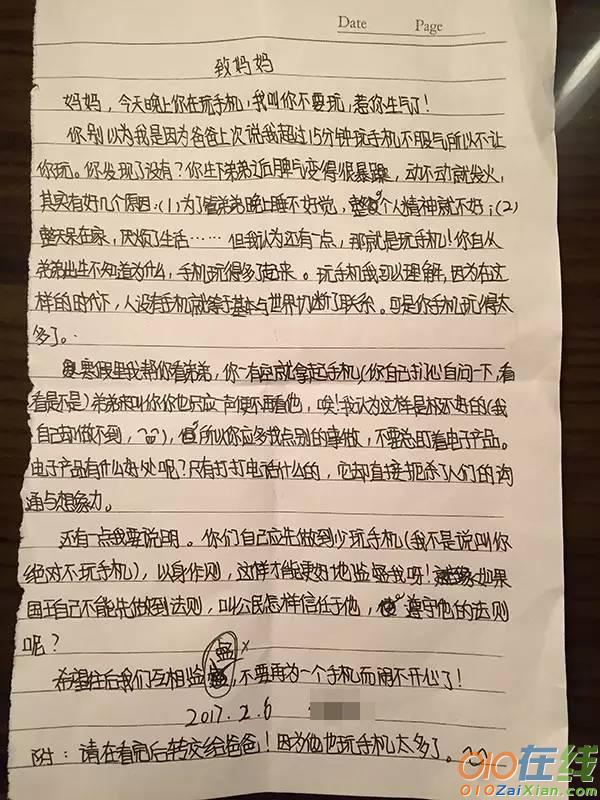 Date Page
致妈妈
妈妈，今天晚上你在玩手机，我叫你不要玩，惹你生气了！
你别以为我是因为爸爸上次说我超过15分钟玩手机不服气所以不让
你玩。你发现了没有？你生下弟弟近脾气变得很暴躁，动不动就发火，
其实有好几个原因：(1)为了管弟弟晚上睡不好觉，整个人精神就不好；(2)
整天呆在家，厌烦了生活……但我认为还有一点，那就是玩手机！你自从
弟弟出生不知道为什么，手机玩得多了起来。玩手机我可以理解，因为在这
样的时代下，人没有手机就等于基本与世界切断了联系。可是你手机玩得太
多了。
寒假里我帮你看弟弟，你一有空就拿起手机(你自己扪心自问一下，看
看是不是)弟弟来叫你你也只应声便不再看他，唉！我认为这样是极不好的(我
自己却做不到，)，所以你应多找点别的事做，不要总盯着电子产品。
电子产品有什么好处呢？只有打打电话什么的，它却直接扼杀了人们的沟
通与想象力。
还有一点我要说明。你们自己应先做到少玩手机(我不是说叫你
绝对不玩手机)，以身作则，这样才能更好地监督我呀！如果
国王自己不能先做到法则，叫公民怎样信任于他，遵守他的法则
呢？
希望往后我们互相监督，不要再为一个手机而闹不开心了！
2017.2.6
附：请在看完后转交给爸爸！因为他也玩手机太多了。
010在线
010ZaiXian.com